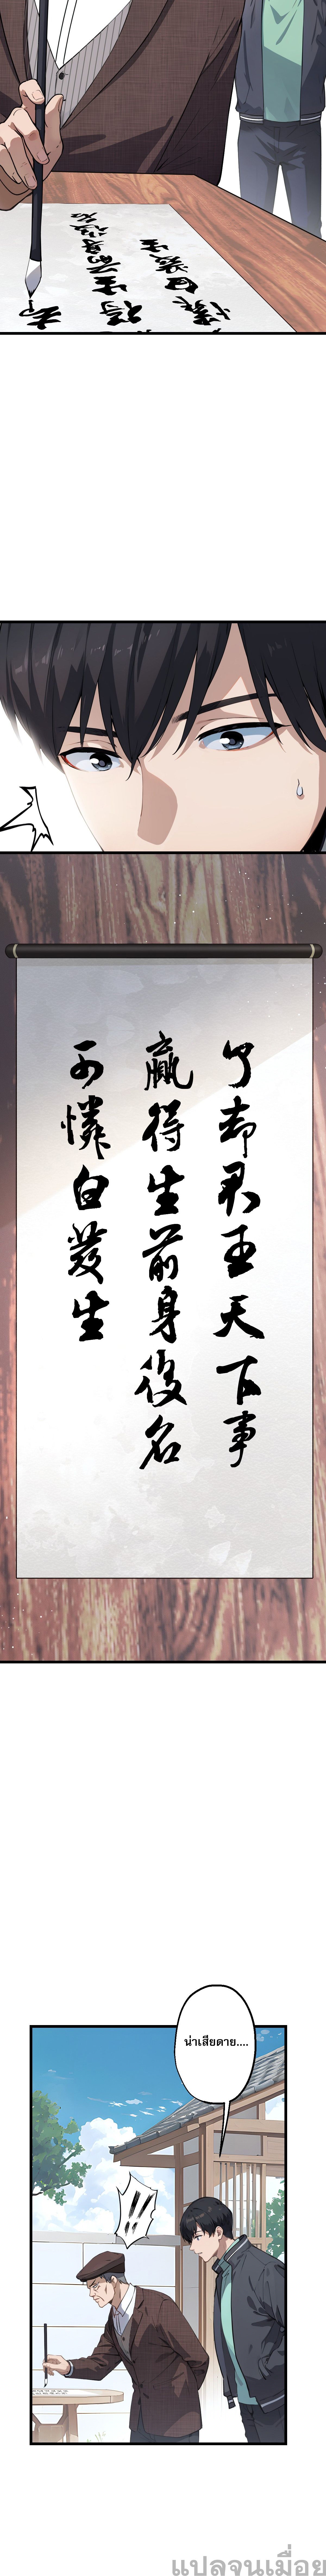 了却君王天下事
贏得生前身後名
可憐白发生
น่าเสียดาย....
แปลจนเมื่อย